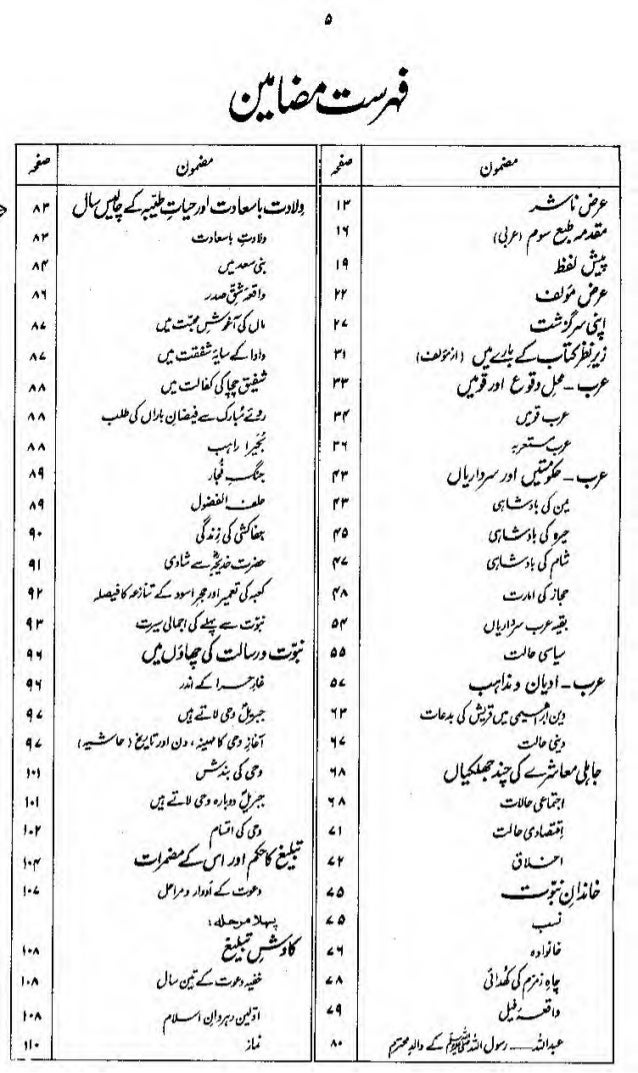 ۵
فہرست مضامین
مضمون صفحہ
عرض ناشر ۱۳
مقدمہ طبع سوم (عربی) ۱۶
پیش لفظ ۱۹
عرض مؤلف ۲۲
اپنی سرگزشت ۲۷
زیر نظر کتاب کے بارے میں (از مؤلف) ۳۱
عرب - محل وقوع اور قومیں ۳۳
عرب قومیں ۳۴
عرب مستعربہ ۳۶
عرب - حکومتیں اور سرداریاں ۴۳
یمن کی بادشاہی ۴۳
حیرہ کی بادشاہی ۴۵
شام کی بادشاہی ۴۷
حجاز کی امارت ۴۸
بقیہ عرب سرداریاں ۵۴
سیاسی حالت ۵۵
عرب - ادیان و مذاہب ۵۷
دین ابراہیمی میں قریش کی بدعات ۶۳
دینی حالت ۶۷
جاہلی معاشرے کی چند جھلکیاں ۶۸
اجتماعی حالات ۶۸
اقتصادی حالت ۷۱
اخلاق ۷۲
خاندانِ نبوّت ۷۵
نسب ۷۵
خانوادہ ۷۶
چاہِ زمزم کی کھدائی ۷۸
واقعۂ فیل ۷۹
عبداللہ — رسول اللہ ﷺ کے والد محترم ۸۰
مضمون صفحہ
ولادت باسعادت اور حیاتِ طیّبہ کے چالیس سال ۸۳
ولادتِ باسعادت ۸۳
بنی سعد میں ۸۴
واقعہ شقِّ صدر ۸۶
ماں کی آغوشِ محبّت میں ۸۷
دادا کے سایۂ شفقت میں ۸۷
شفیق چچا کی کفالت میں ۸۸
روئے مبارک سے فیضانِ باراں کی طلب ۸۸
بُحیرا راہب ۸۸
جنگِ فُجار ۸۹
حلف الفضول ۸۹
جفاکشی کی زندگی ۹۰
حضرت خدیجہؓ سے شادی ۹۱
کعبہ کی تعمیر اور حجر اسود کے تنازعہ کا فیصلہ ۹۲
نبوّت سے پہلے کی اجمالی سیرت ۹۳
نبوّت و رسالت کی چھاؤں میں ۹۶
غارِ حرا کے اندر ۹۶
جبریلؑ وحی لاتے ہیں ۹۷
آغازِ وحی کا مہینہ، دن اور تاریخ (حاشیہ) ۹۷
وحی کی بندش ۱۰۱
جبریلؑ دوبارہ وحی لاتے ہیں ۱۰۱
وحی کی اقسام ۱۰۲
تبلیغ کا حکم اور اس کے مضمرات ۱۰۴
دعوت کے ادوار و مراحل ۱۰۷
پہلا مرحلہ:
کاوشِ تبلیغ ۱۰۸
خفیہ دعوت کے تین سال ۱۰۸
اوّلین رہروانِ اسلام ۱۰۸
نماز ۱۱۰